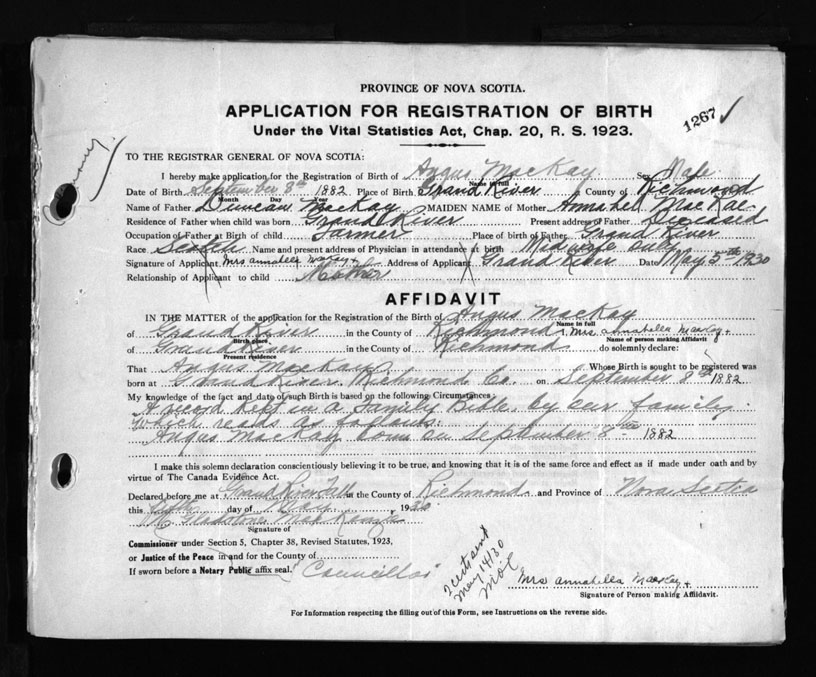 PROVINCE OF NOVA SCOTIA.
APPLICATION FOR REGISTRATION OF BIRTH
1267 ✓
Under the Vital Statistics Act, Chap. 20, R. S. 1923.
TO THE REGISTRAR GENERAL OF NOVA SCOTIA:
I hereby make application for the Registration of Birth of Angus MacKay Sex Male
Name in full
Date of Birth September 8th 1882 Place of Birth Grand River County of Richmond
Month Day Year
Name of Father Duncan MacKay MAIDEN NAME of Mother MacRae
Residence of Father when child was born Grand River Present address of Father Deceased
Occupation of Father at Birth of child Farmer Place of birth of Father Grand River
Race Scotch Name and present address of Physician in attendance at birth Midwife only
Signature of Applicant Mrs annabella MacKay + Address of Applicant Grand River Date May 5th 1930
Relationship of Applicant to child Mother
AFFIDAVIT
IN THE MATTER of the application for the Registration of the Birth of Angus MacKay
Name in full
of Grand River in the County of Richmond, Mrs Annabella MacKay +
Birth place Name of person making Affidavit
of Grand River in the County of Richmond do solemnly declare:
Present residence
That Angus MacKay Whose Birth is sought to be registered was
born at Grand River Richmond Co. on September 8th 1882
My knowledge of the fact and date of such Birth is based on the following Circumstances:
A record kept in a Family Bible, by our family.
Which reads as follows:
Angus MacKay born on September 8th 1882
I make this solemn declaration conscientiously believing it to be true, and knowing that it is of the same force and effect as if made under oath and by
virtue of The Canada Evidence Act.
Declared before me at Grand River in the County of Richmond and Province of Nova Scotia
this day of 1930
Signature of
Commissioner under Section 5, Chapter 38, Revised Statutes, 1923,
or Justice of the Peace in and for the County of
If sworn before a Notary Public affix seal. Councillor
May 14/30
Mrs annabella MacKay +
Signature of Person making Affidavit.
For Information respecting the filling out of this Form, see Instructions on the reverse side.